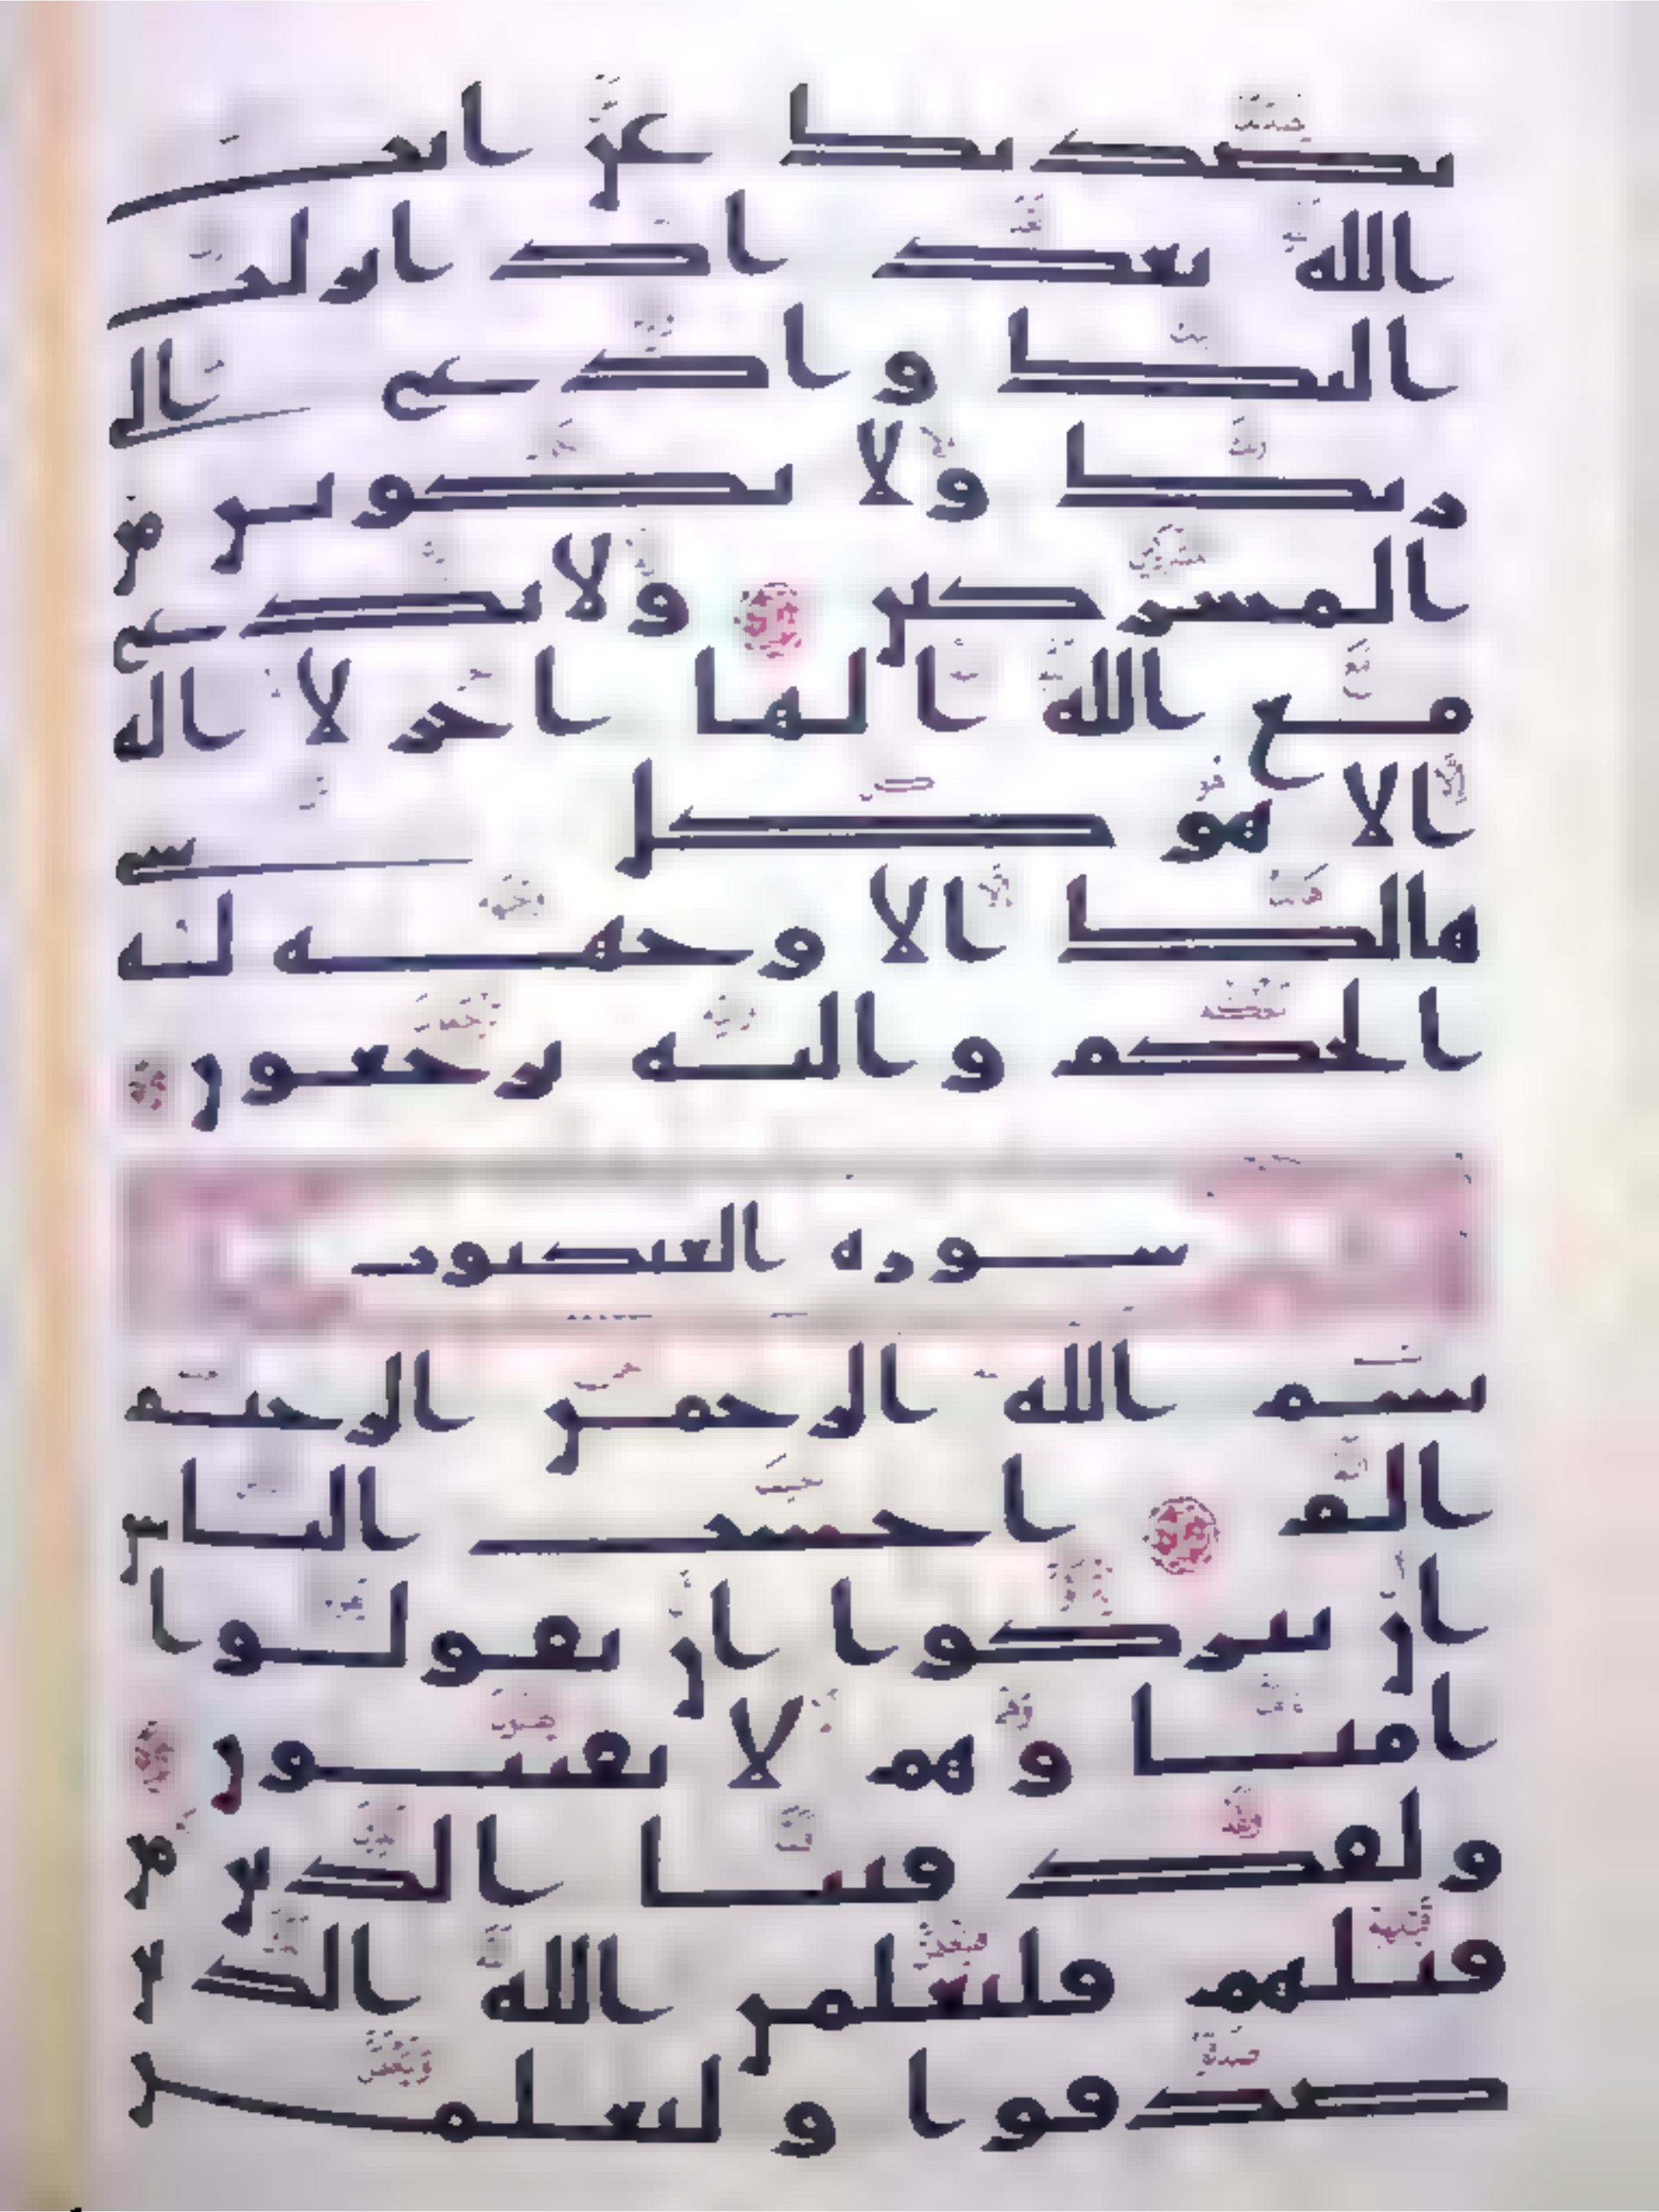 يصدنك عن ايت
الله بعد اذ انزلت
اليك وادع الى
ربك ولا تكونن من
المشركين ولا تدع
مع الله الها اخر لا اله
الا هو كل شي
هالك الا وجهه له
الحكم واليه ترجعون
سورة العنكبوت
بسم الله الرحمن الرحيم
الم احسب الناس
ان يتركوا ان يقولوا
امنا وهم لا يفتنون
ولقد فتنا الذين من
قبلهم فليعلمن الله الذين
صدقوا وليعلمن